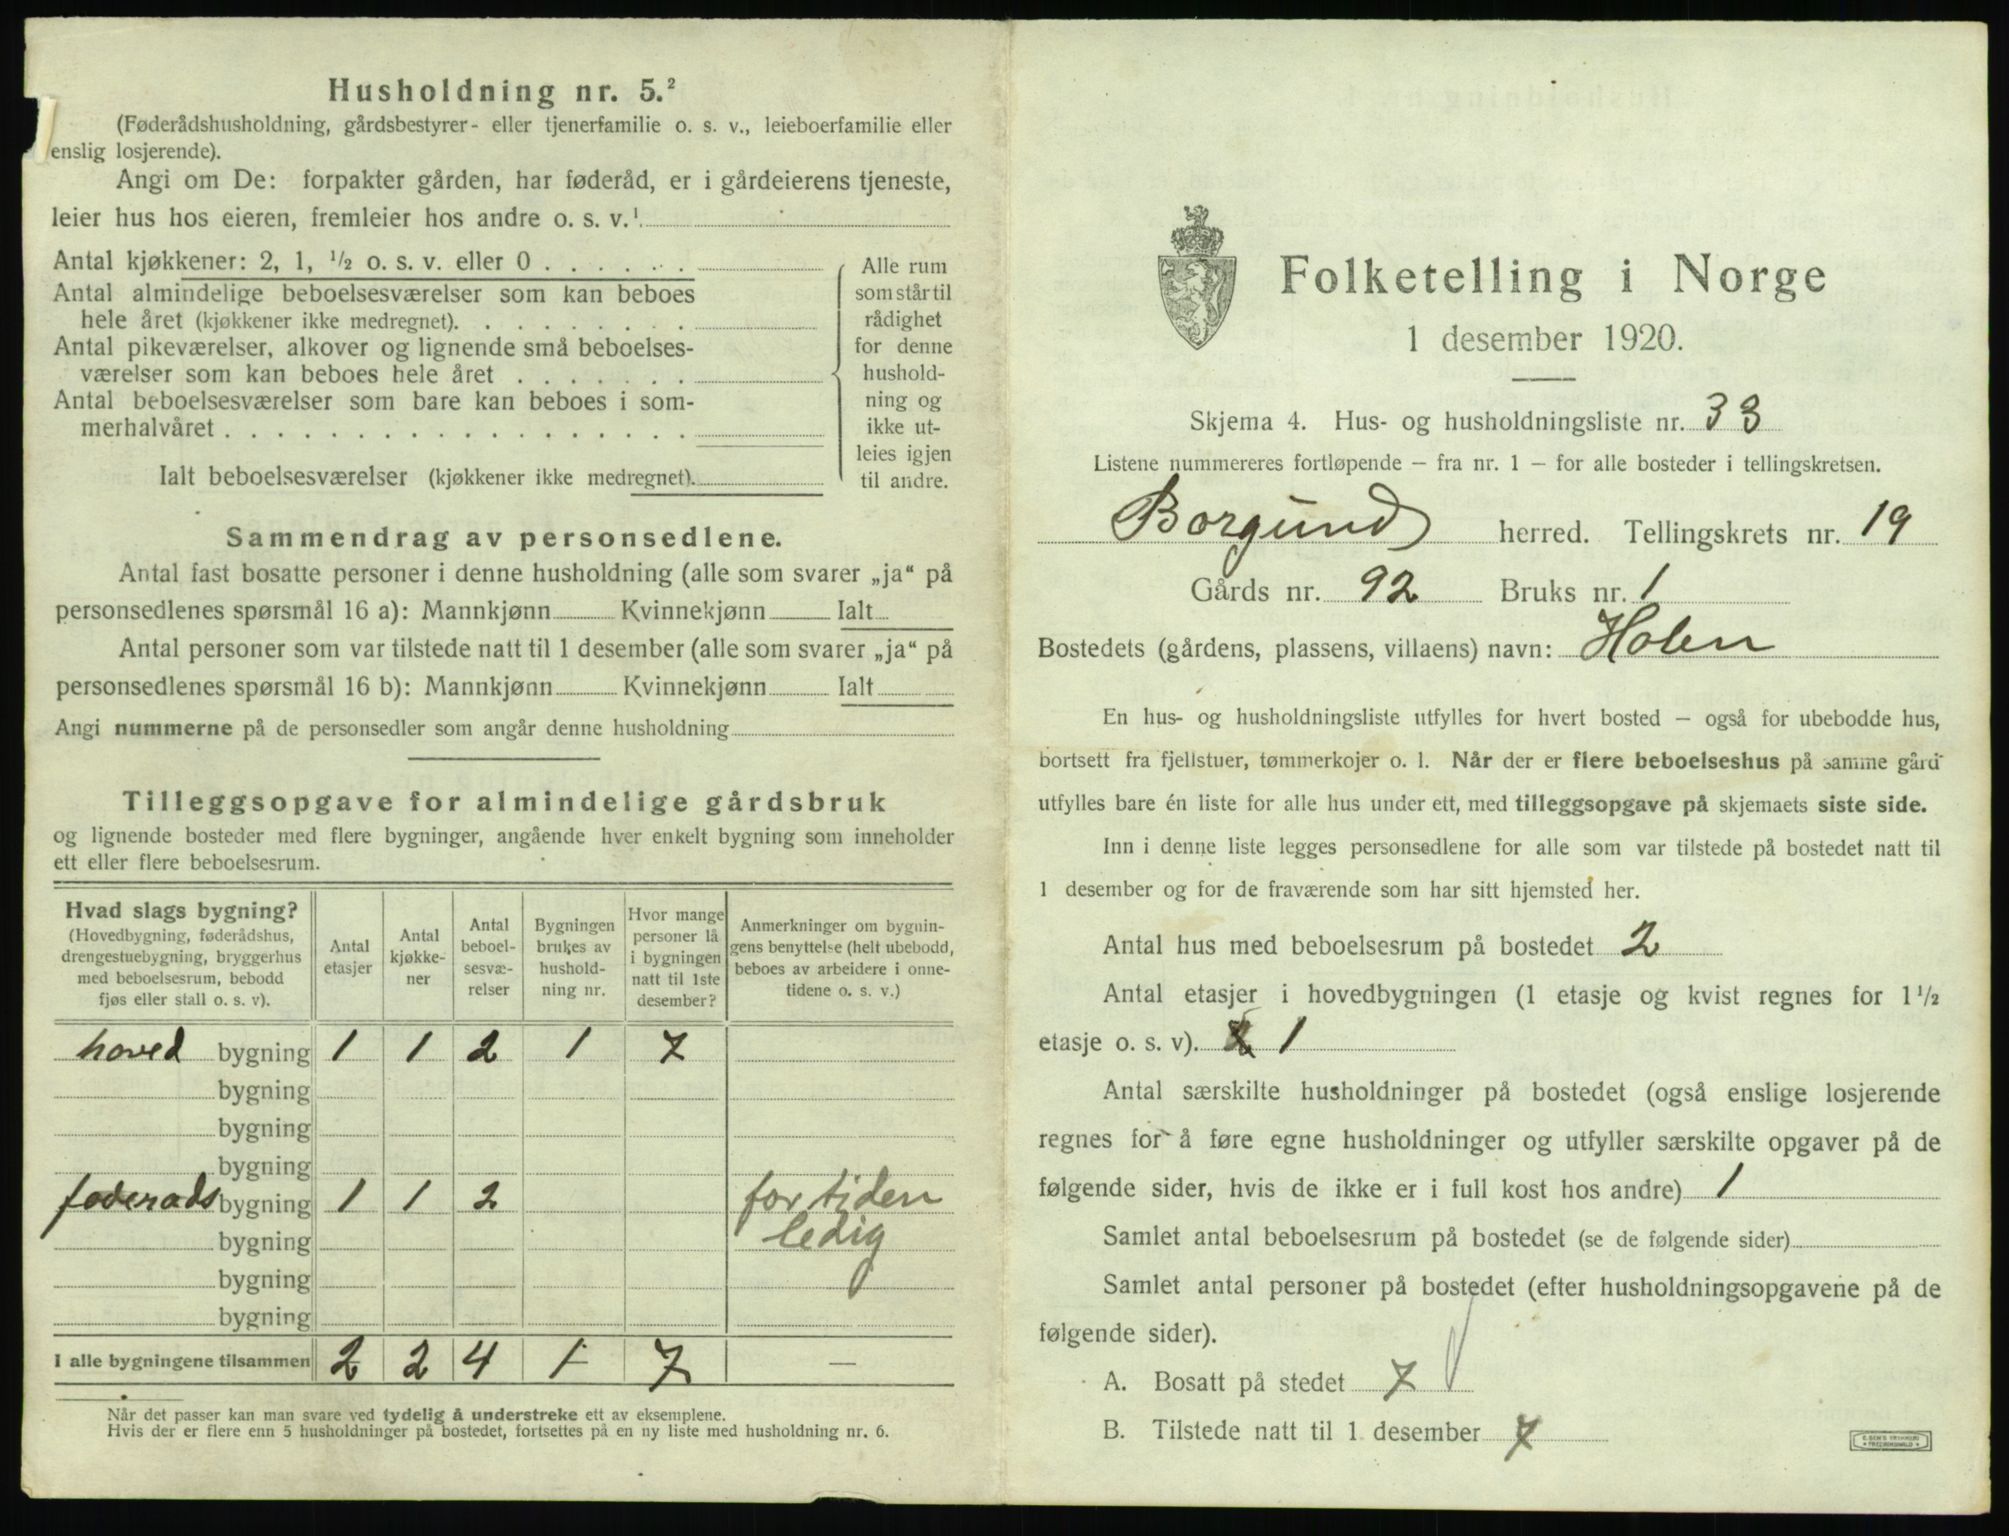 Husholdning nr. 5.²
(Føderådshusholdning, gårdsbestyrer- eller tjenerfamilie o. s. v., leieboerfamilie eller
enslig losjerende).
Angi om De: forpakter gården, har føderåd, er i gårdeierens tjeneste,
leier hus hos eieren, fremleier hos andre o. s. v.¹
Antal kjøkkener: 2, 1, ½ o. s. v. eller 0 . . . . . .
Antal almindelige beboelsesværelser som kan beboes
hele året (kjøkkener ikke medregnet). . . . . . . . .
Antal pikeværelser, alkover og lignende små beboelses-
værelser som kan beboes hele året . . . . . . .
Antal beboelsesværelser som bare kan beboes i som-
merhalvåret . . . . . . . . . . . . . . . . . .
Ialt beboelsesværelser (kjøkkener ikke medregnet).
Alle rum
som står til
rådighet
for denne
hushold-
ning og
ikke ut-
leies igjen
til andre.
Sammendrag av personsedlene.
Antal fast bosatte personer i denne husholdning (alle som svarer „ja“ på
personsedlenes spørsmål 16 a): Mannkjønn Kvinnekjønn Ialt
Antal personer som var tilstede natt til 1 desember (alle som svarer „ja“ på
personsedlenes spørsmål 16 b): Mannkjønn Kvinnekjønn Ialt
Angi nummerne på de personsedler som angår denne husholdning
Tilleggsopgave for almindelige gårdsbruk
og lignende bosteder med flere bygninger, angående hver enkelt bygning som inneholder
ett eller flere beboelsesrum.
Hvad slags bygning?
(Hovedbygning, føderådshus,
drengestuebygning, bryggerhus
med beboelsesrum, bebodd
fjøs eller stall o. s. v).
Antal
etasjer
Antal
kjøkke-
ner
Antal
beboel-
sesvæ-
relser
Bygningen
brukes av
hushold-
ning nr.
Hvor mange
personer lå
i bygningen
natt til 1ste
desember?
Anmerkninger om bygnin-
gens benyttelse (helt ubebodd,
beboes av arbeidere i onne-
tidene o. s. v.)
hoved bygning 1 1 2 1 7
bygning
bygning
bygning
foderads bygning 1 1 2 for tiden
bygning ledig
bygning
bygning
I alle bygningene tilsammen 2 2 4 1 7 —
Når det passer kan man svare ved tydelig å understreke ett av eksemplene.
Hvis der er flere enn 5 husholdninger på bostedet, fortsettes på en ny liste med husholdning nr. 6.
Folketelling i Norge
1 desember 1920.
Skjema 4. Hus- og husholdningsliste nr. 33
Listene nummereres fortløpende – fra nr. 1 – for alle bosteder i tellingskretsen.
Borgund herred. Tellingskrets nr. 19
Gårds nr. 92 Bruks nr. 1
Bostedets (gårdens, plassens, villaens) navn: Holen
En hus- og husholdningsliste utfylles for hvert bosted – også for ubebodde hus,
bortsett fra fjellstuer, tømmerkojer o. l. Når der er flere beboelseshus på samme gård
utfylles bare én liste for alle hus under ett, med tilleggsopgave på skjemaets siste side.
Inn i denne liste legges personsedlene for alle som var tilstede på bostedet natt til
1 desember og for de fraværende som har sitt hjemsted her.
Antal hus med beboelsesrum på bostedet 2
Antal etasjer i hovedbygningen (1 etasje og kvist regnes for 1½
etasje o. s. v). 1
Antal særskilte husholdninger på bostedet (også enslige losjerende
regnes for å føre egne husholdninger og utfyller særskilte opgaver på de
følgende sider, hvis de ikke er i full kost hos andre) 1
Samlet antal beboelsesrum på bostedet (se de følgende sider)
Samlet antal personer på bostedet (efter husholdningsopgavene på de
følgende sider).
A. Bosatt på stedet 7
B. Tilstede natt til 1 desember 7